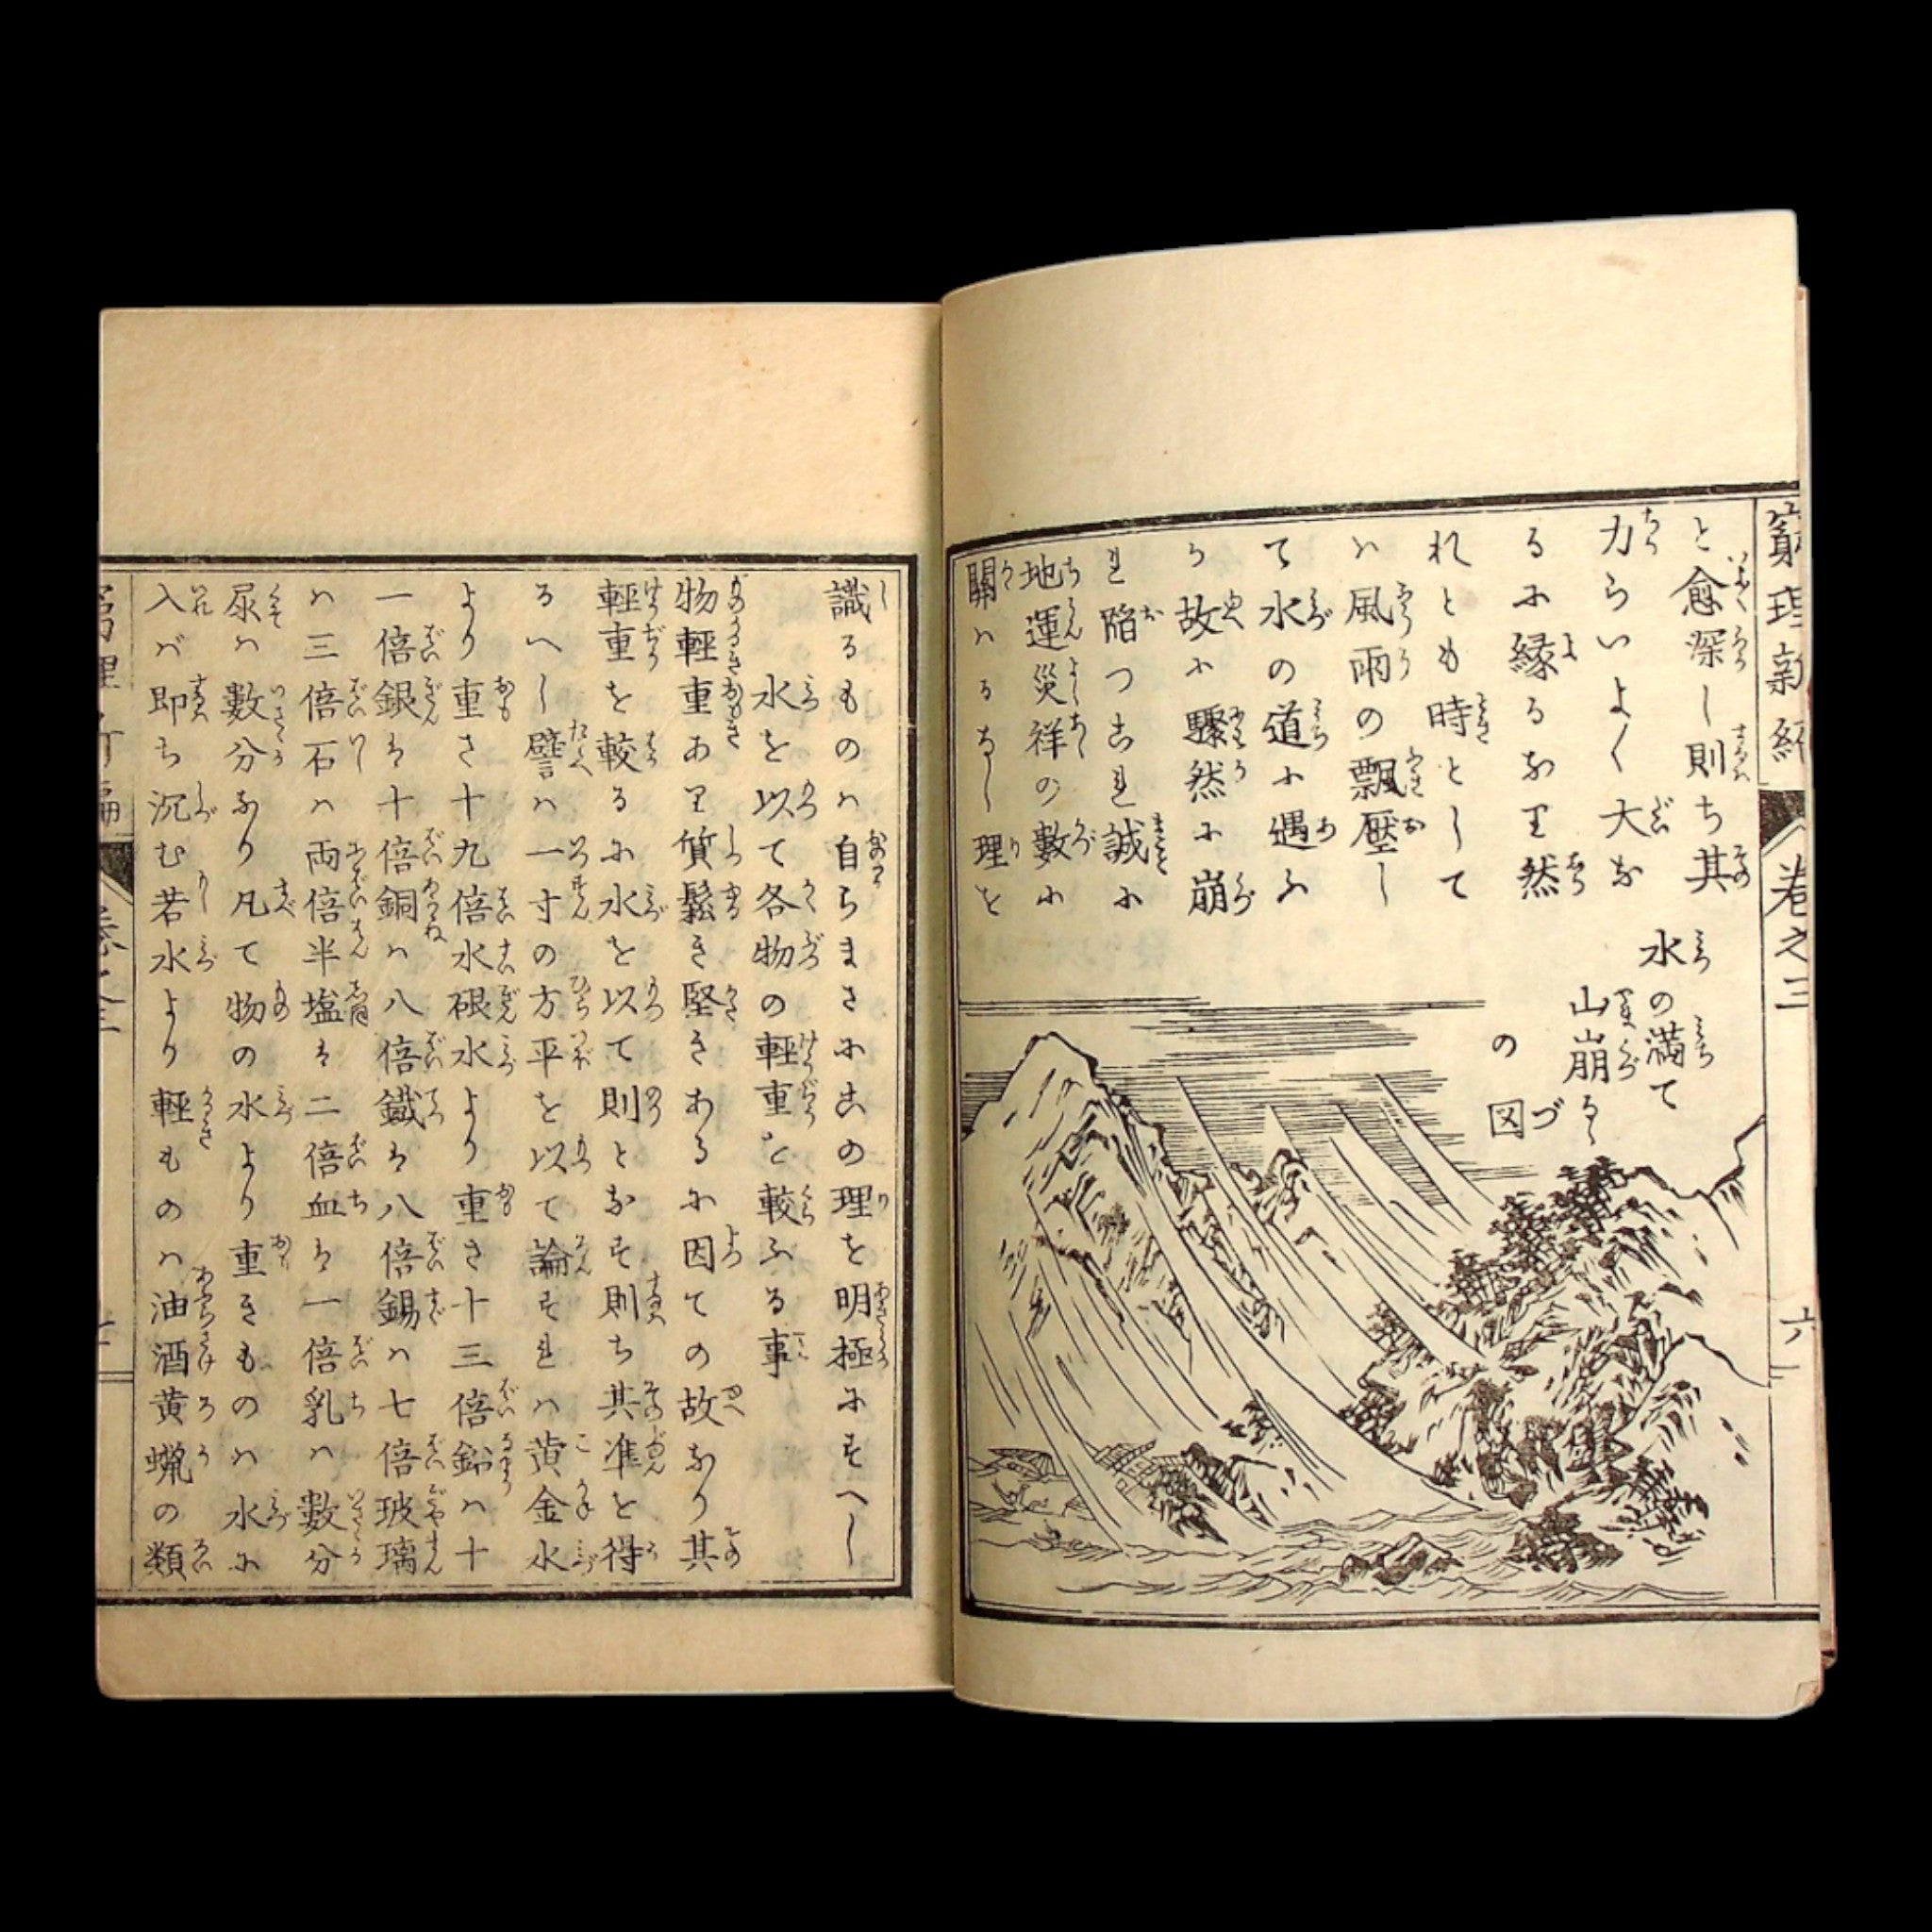 窮理新編 卷之三 六
と愈深し則ち其
力らいよく大な
るに縁るなり然
れとも時として
ハ風雨の飄壓し
て水の道に遇ふ
か故に驟然に崩
れ陥つこれ誠に
地運災祥の數に
關ハるなし理を
水の満て
山崩るゝ
の図
識るものハ自らまさにこの理を明極にすへし
水を以て各物の輕重を較ふる事
物輕重あり質鬆き堅きあるに因ての故なり其
輕重を較るに水を以て則となす則ち其准を得
るへし譬ハ一寸の方平を以て論すれハ黄金水
より重さ十九倍水硍水より重さ十三倍鉛ハ十
一倍銀ハ十倍銅ハ八倍鐵ハ八倍錫ハ七倍玻璃
ハ三倍石ハ両倍半塩ハ二倍血ハ一倍乳ハ數分
尿ハ數分なり凡て物の水より重きものハ水に
入バ即ち沉む若水より輕ものハ油酒黄蝋の類